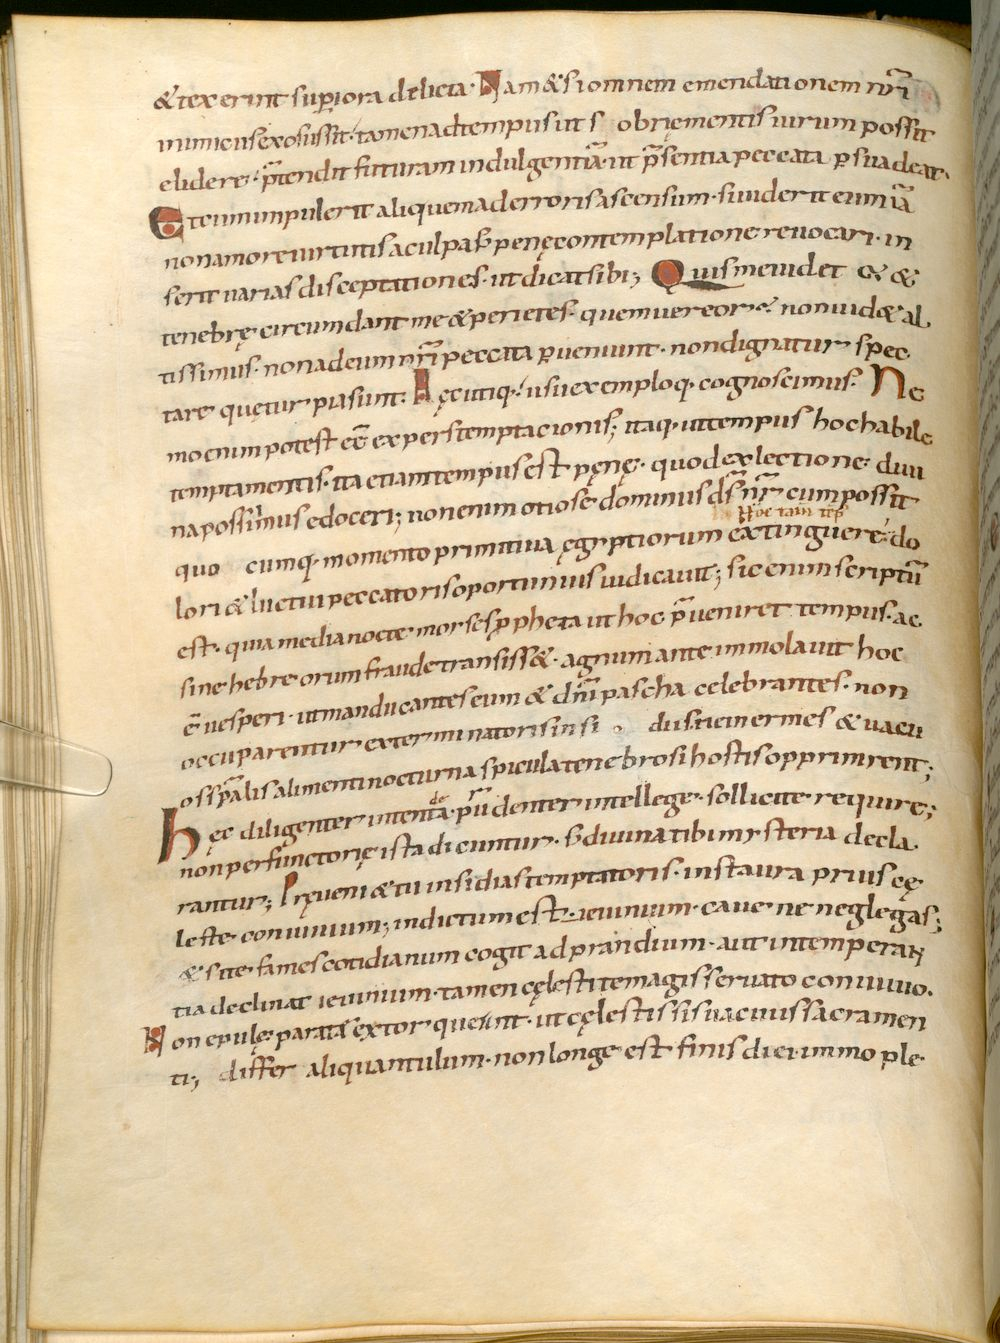 &texerint sup̄iora delicta. Nam & si omnem emendationem nr̄i
inimicus exosus sit. tamen ad tempus ut s obriementis uirum possit
elidere. p̄tendit futuram indulgentiā. ut p̄sentia peccata p suadeat.
Et cum impulerit aliquem ad erroris ascensum. si uiderit eum iā
non amore uirtutis a culpa. s; penę contemplatione reuocari. in
serit uarias disceptationes. ut dicat sibi; Quis me uidet & &
tenebrę circumdant me & perietes. quem uereor. non uid& al
tissimus. non ad eum nr̄i peccata pueniunt. non dignatur spec
tare quę turpia sunt. Hęc itaq. usu exemploq. cognoscimus. Ne
mo enim potest eē expers temptacionis; itaq. ut tempus hoc habile
temptamentis. ita etiam tempus est pęnę. quod ex lectione diui
na possimus edoceri; non enim otiose dominus ds̄ nr̄ cum possit
hoc tam tēp
quo cumq. momento primitiua ęgyptiorum extinguere. do
lori & luctui peccatoris oportunius iudicauit; sic enim scriptū
est. quia media nocte mors esp̄ pheta ut hoc p̄ueniret tempus. ac
sine hebreorum fraude transiss&. agnum ante immolauit hoc
ē uesperi. ut manducantes eum & dn̄i pascha celebrantes. non
occuparentur exterminatoris insi dus ne inermes & uacu
os sp̄alis alimenti nocturna spicula tenebrosi hostis opprimrent;
hęc diligenter intenta de. prudenter intellege. sollicite require;
non perfunctorię ista dicuntur. s; diuina tibi mysteria decla
rantur; Pręueni & tu insidias temptatoris. instaura prius cę
leste conuiuium; indictum est ieiunium. caue ne neglegas;
& si te fames cotidianum cogit ad prandium. aut intemperan
tia declinat ieiunium. tamen cęlesti te magis seruato conuiuio.
Non epulę paratę extorqueant. ut cęlestis sis uacuus sacramen
ti; differ aliquantulum. non longe est finis diei. immo ple